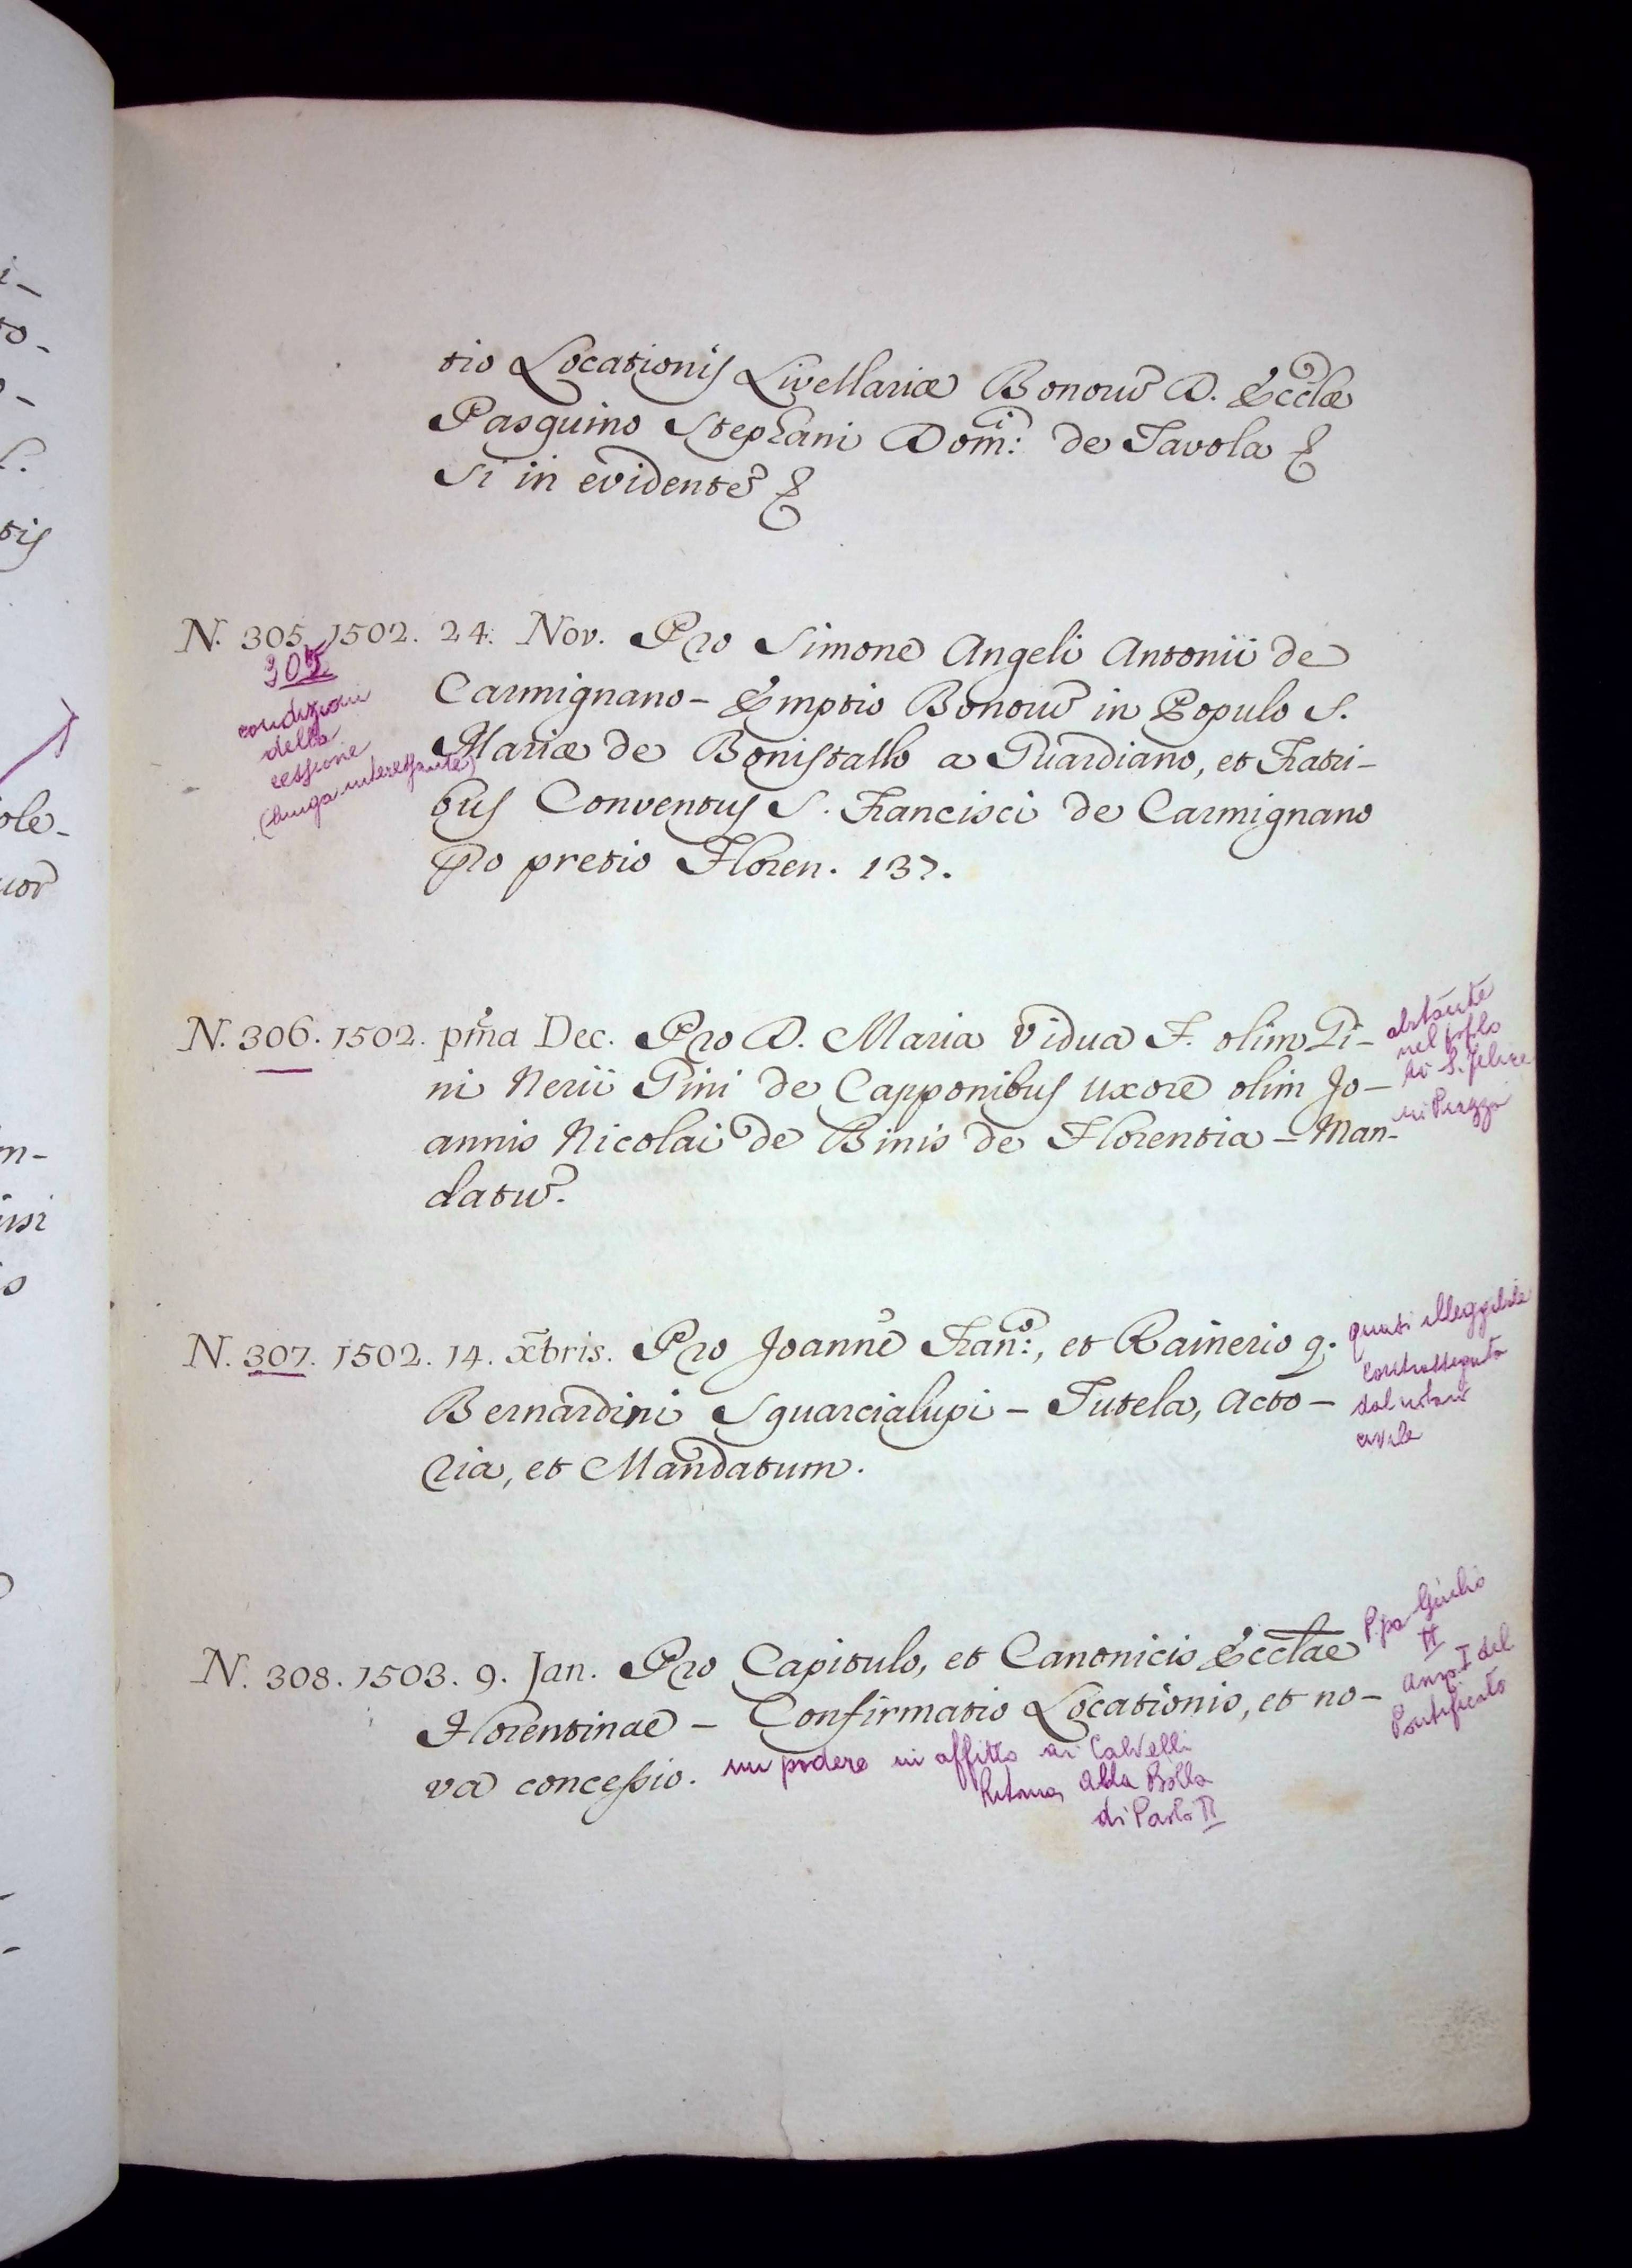 tio Locationis Livellariæ Bonorū D. Eccłæ
Pasquino Stephani Domi: de Tavola &
Si in evidentē &
N. 305. 1502. 24. Nov. Pro Simone Angeli Antonii de
Carmignano - Emptio Bonorū in Populo S.
Mariæ de Bonistallo a Guardiano, et Fratri-
bus Conventus S. Francisci de Carmignano
pro pretio Floren. 137.
305
condizioni
della
cessione
(lunga interessante)
N. 306. 1502. pm̃a Dec. Pro D. Maria Vidua F. olim Pi-
ni Nerii Pini de Capponibus uxore olim Jo-
annis Nicolai de Binis de Florentia - Man-
datū.
abitante
nel poplo
di S. Felice
in Piazza
N. 307. 1502. 14. xbris. Pro Joannē Frano:, et Rainerio q.
Bernardini Squarcialupi - Tutela, Acto-
ria, et Mandatum.
quasi illeggibile
contrassegnato
dal notaro
civile
N. 308. 1503. 9. Jan. Pro Capitulo, et Canonicis Ecclae
Florentinae - Confirmatio Locationis, et no-
va concessio.
un podere in affitto ai Calvelli
Ritorna alla Bolla
di Paolo II
P.pa Giulio
II
anno I del
Pontificato
i-
to-
o-
tis
ole-